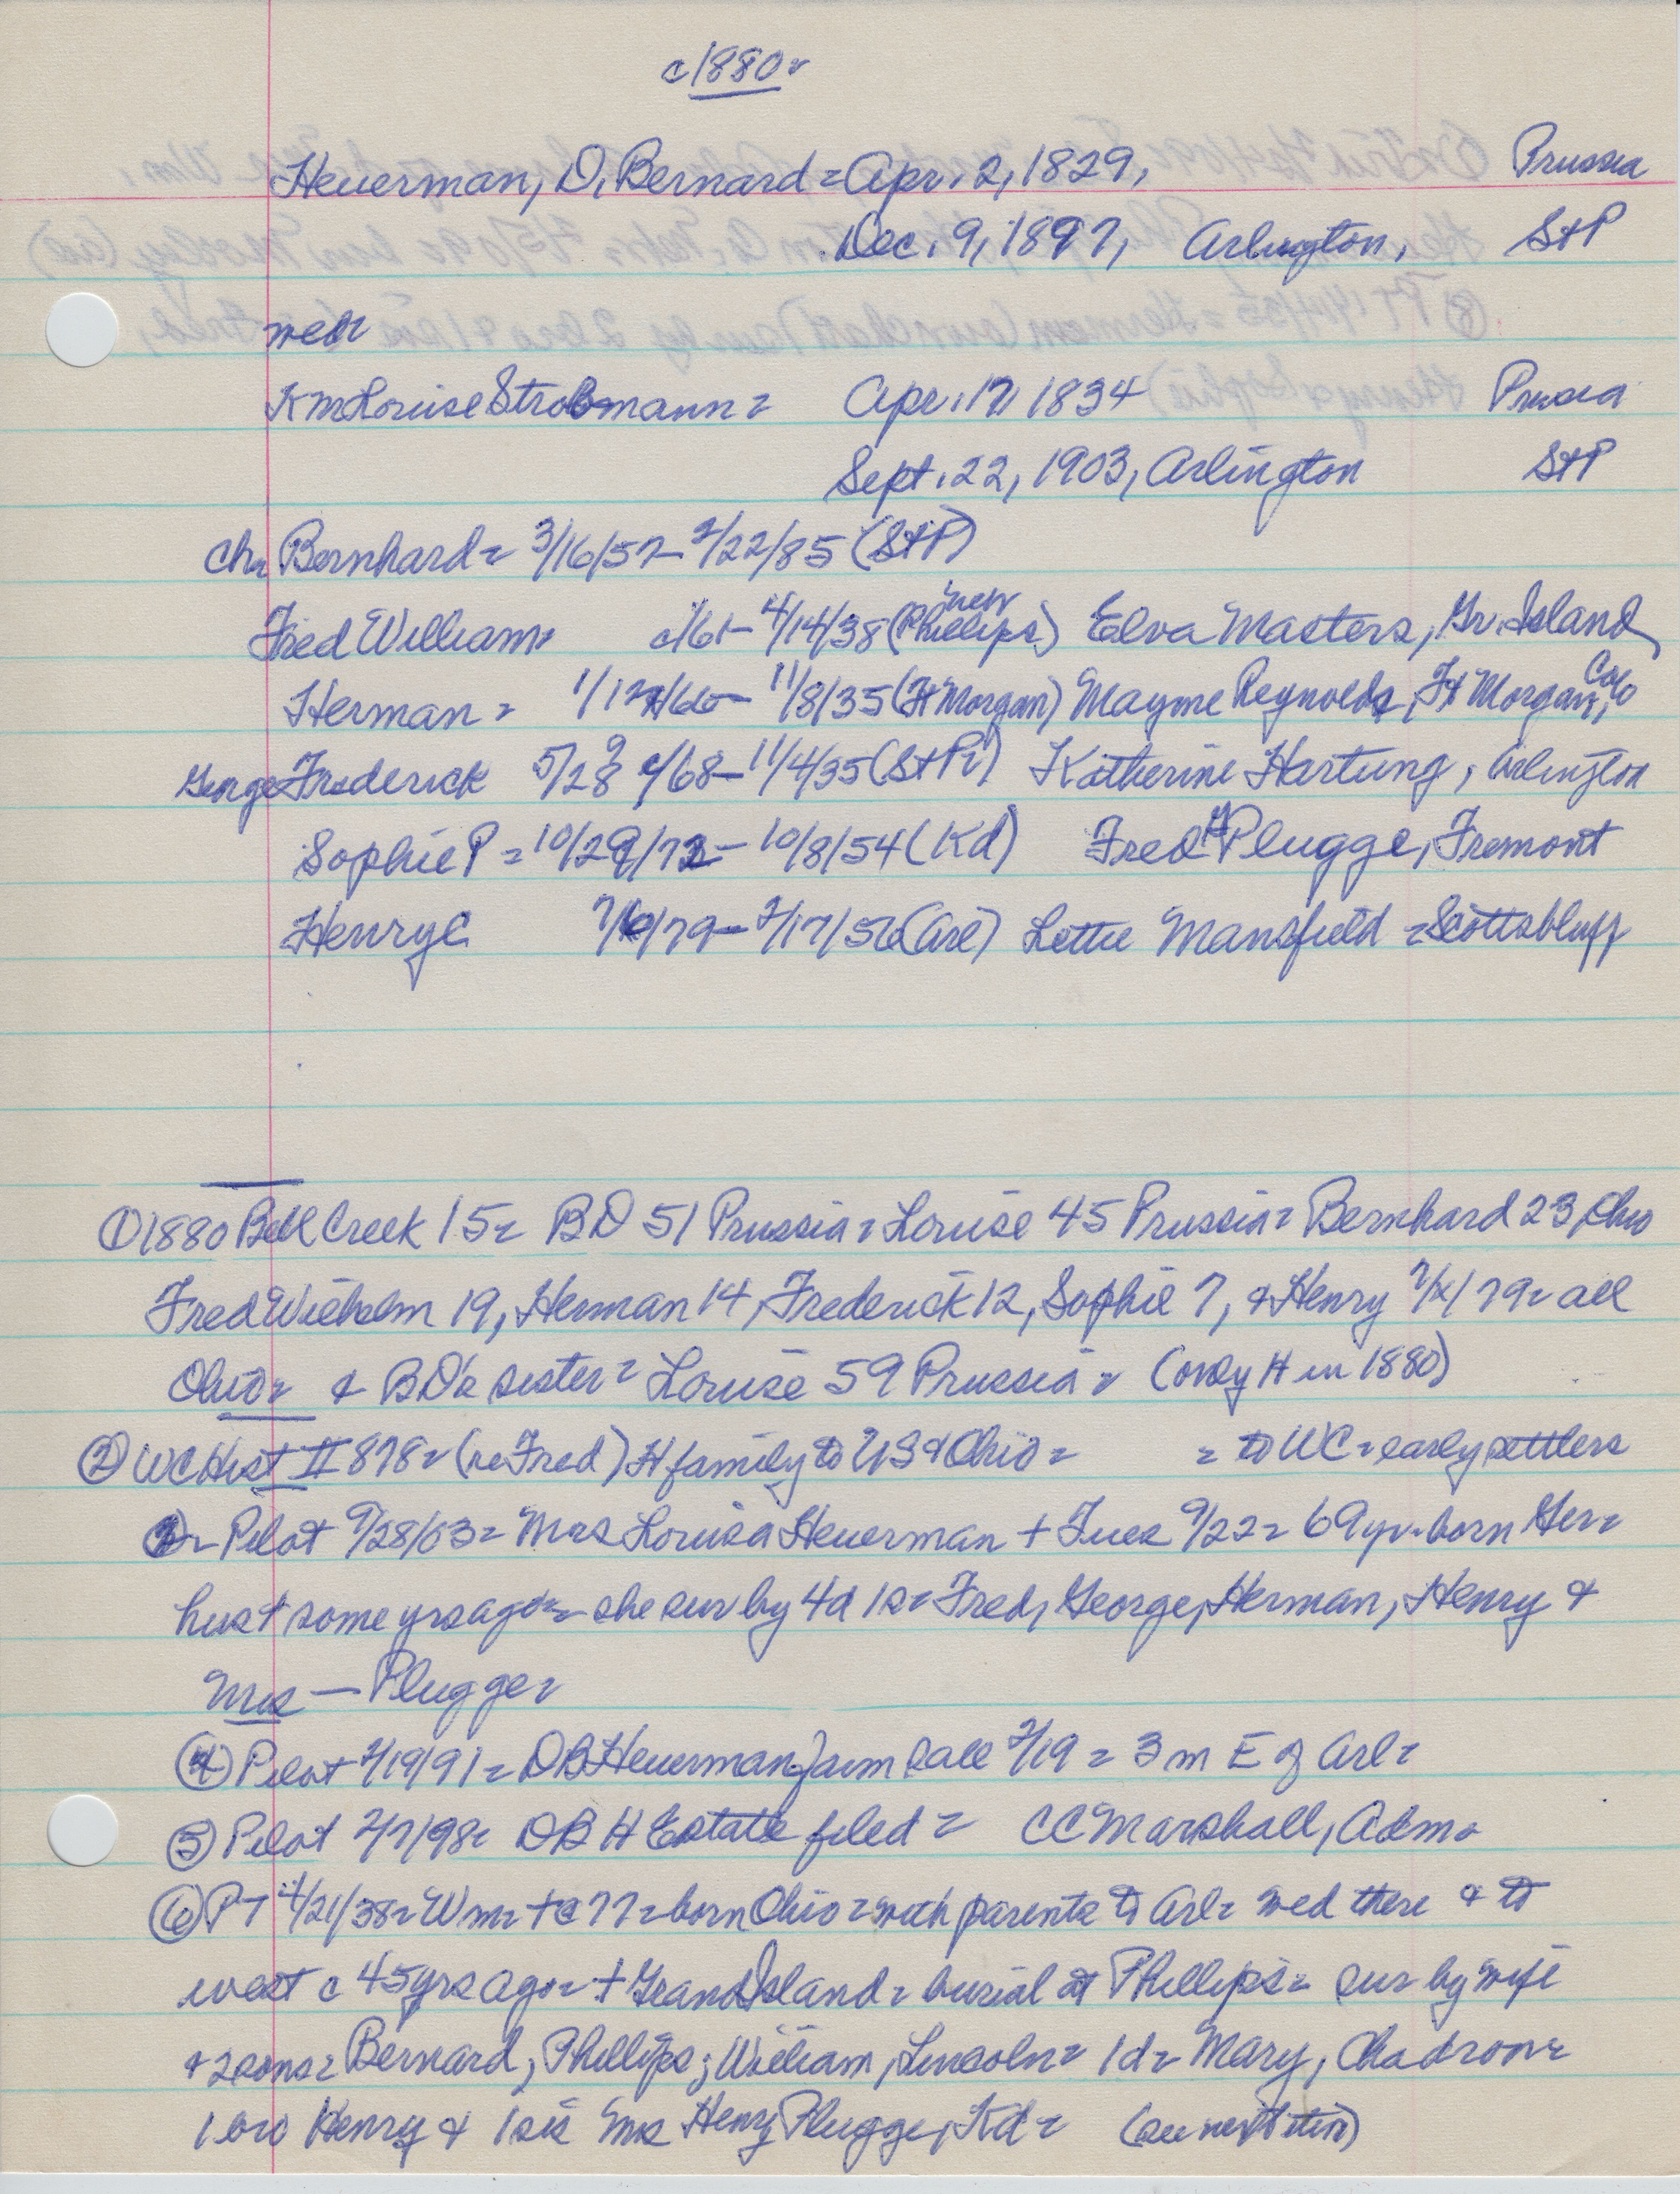 c1880=
Heuerman, D. Bernard = Apr. 2, 1829, Prussia
Dec. 9, 1897, Arlington, StP
wed=
Louise Strobmann = Apr. 17, 1834 Prussia
Sept. 22, 1903, Arlington StP
ch= Bernhard = 3/16/57- 2/22/85 (StP)
Fred William= c/61- 4/14/38 (Phillips) Elva Masters, Gr. Island
Herman = 11/8/35 (Ft Morgan) Mayme Reynolds, Ft Morgan, Colo
George Frederick 11/4/35 (StP) Katherine Hartung, Arlington
Sophie P = 10/8/54 (Kd) Fred H Plugge, Fremont
Henry C 2/17/56 (Arl) Lettie Mansfield = Scottsbluff
① 1880 Bell Creek 15= BD 51 Prussia = Louise 45 Prussia = Bernhard 23, Ohio
Fred Wilhelm 19, Herman 14, Frederick 12, Sophie 7, & Henry 7/x/79= all
Ohio= & BD's sister = Louise 59 Prussia = (only H in 1880)
② WC Hist II 878= (re Fred) H family to US & Ohio = = to WC = early settlers
③= Pilot 9/28/03= Mrs Louisa Heuerman + Tues 9/22= 69 yr= born Ger=
hus + some yrs ago= she sur by 4d 1s= Fred, George, Herman, Henry &
Mrs — Plugge=
④ Pilot 2/19/91= DB Heuerman farm sale 2/19 = 3 m E of Arl=
⑤ Pilot 2/7/98= DB H Estate filed = CC Marshall, Adm=
⑥ PT 4/21/38= Wm= + c 77= born Ohio = with parents to Arl= wed there & to
west c 45 yrs ago= + Grand Island = burial at Phillips= sur by wife
& 2 sons= Bernard, Phillips; William, Lincoln= 1d= Mary, Chadron=
1 bro Henry & 1 sis Mrs Henry Plugge, Kd= (see next item)